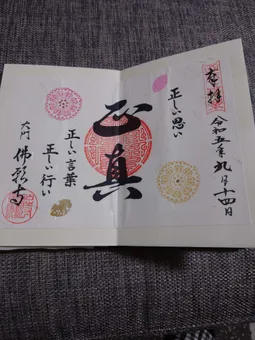 奉拝
令和五年九月十四日
正しい思い
正真
正しい言葉
正しい行い